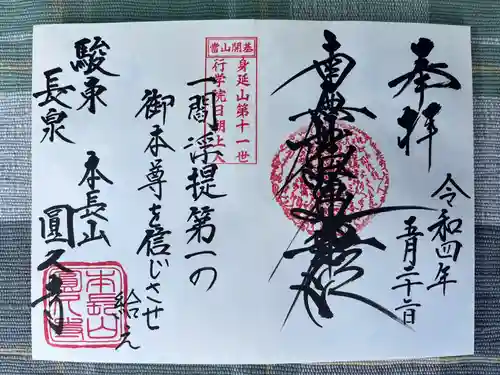 奉拝
令和四年
五月二十二日
南無妙法蓮華経
當山開基
身延山第十一世
行学院日朝上人
一閻浮提第一の
御本尊を信じさせ
給え
駿東 本長山
長泉 圓久寺
本長山
圓久寺